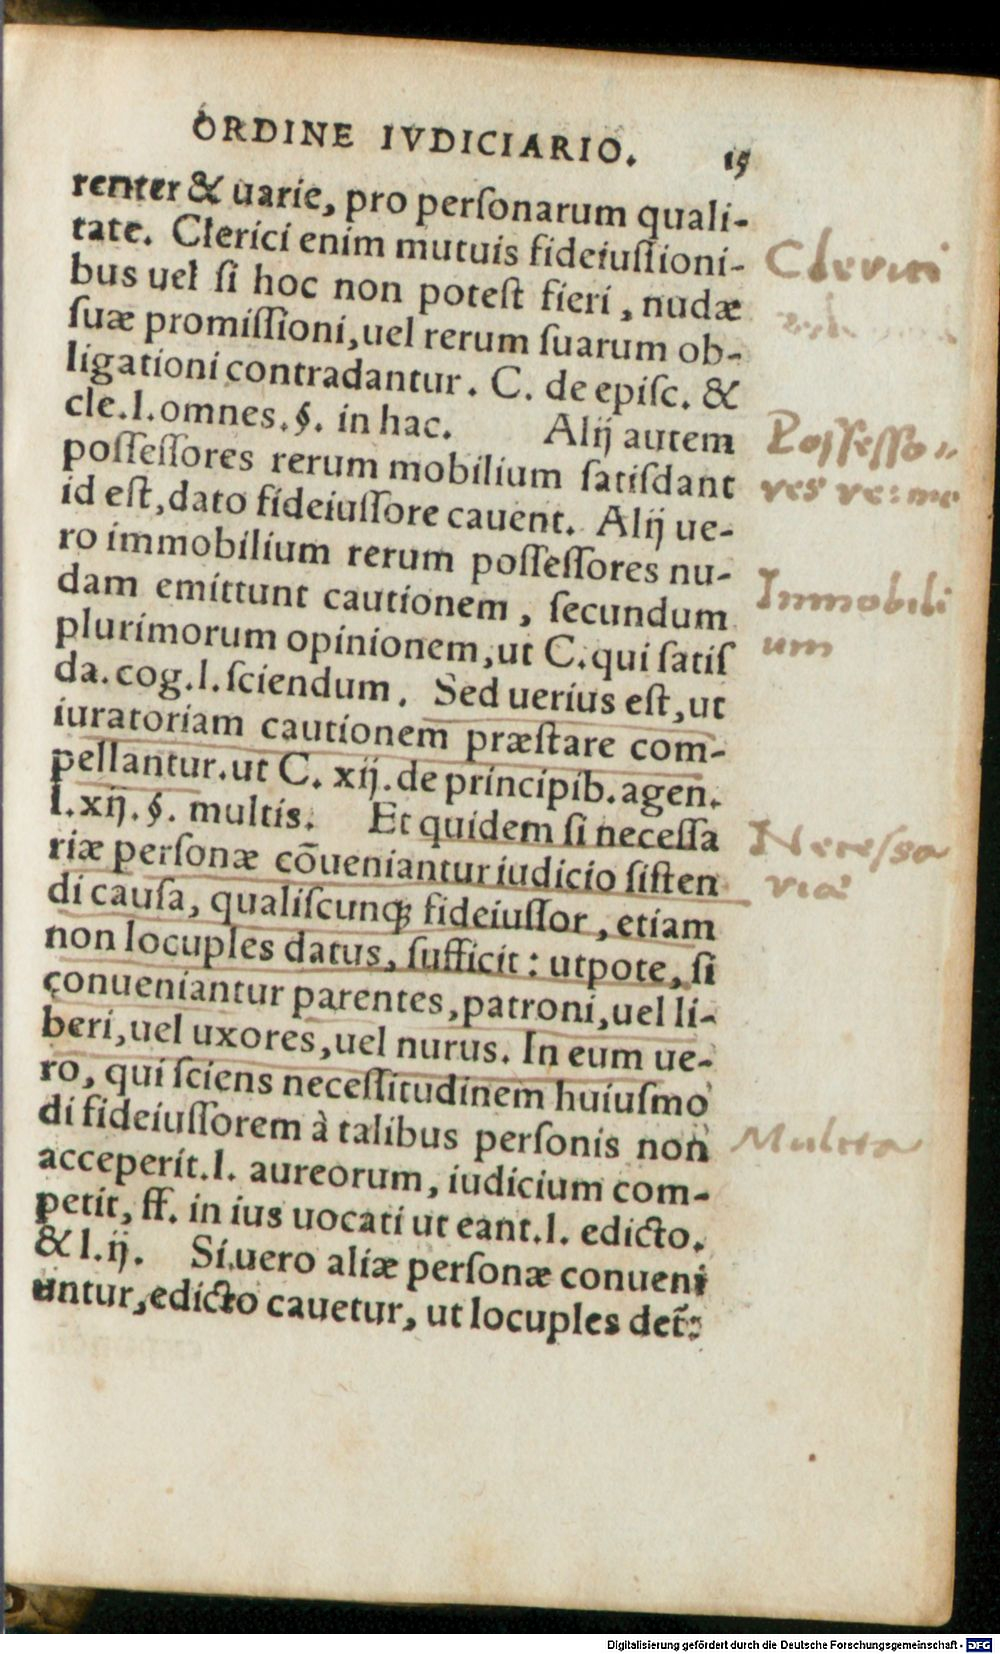 ORDINE IVDICIARIO. 15
renter & uarie, pro perſonarum quali-
tate. Clerici enim mutuis fideiuſſioni-
bus uel ſi hoc non poteſt fieri, nudæ
ſuæ promiſſioni, uel rerum ſuarum ob-
ligationi contradantur. C. de epiſc. &
cle. l. omnes. §. in hac. Alij autem
poſſeſſores rerum mobilium ſatiſdant
id eſt, dato fideiuſſore cauent. Alij ue-
ro immobilium rerum poſſeſſores nu-
dam emittunt cautionem, ſecundum
plurimorum opinionem, ut C. qui ſatiſ
da. cog. l. ſciendum. Sed uerius eſt, ut
iuratoriam cautionem præſtare com-
pellantur. ut C. xij. de principib. agen.
l. xij. §. multis. Et quidem ſi neceſſa
riæ perſonæ cõueniantur iudicio ſiſten
di cauſa, qualiſcunq; fideiuſſor, etiam
non locuples datus, ſufficit: utpote, ſi
conueniantur parentes, patroni, uel li-
beri, uel uxores, uel nurus. In eum ue-
ro, qui ſciens neceſſitudinem huiuſmo
di fideiuſſorem à talibus perſonis non
acceperit. l. aureorum, iudicium com-
petit, ff. in ius uocati ut eant. l. edicto.
& l. ij. Si uero aliæ perſonæ conueni
untur, edicto cauetur, ut locuples det:
Clerici
Poſſeſſo-
res re: mo
Immobili
um
Neceſſa
riæ
Mulcta
Digitalisierung gefördert durch die Deutsche Forschungsgemeinschaft - DFG